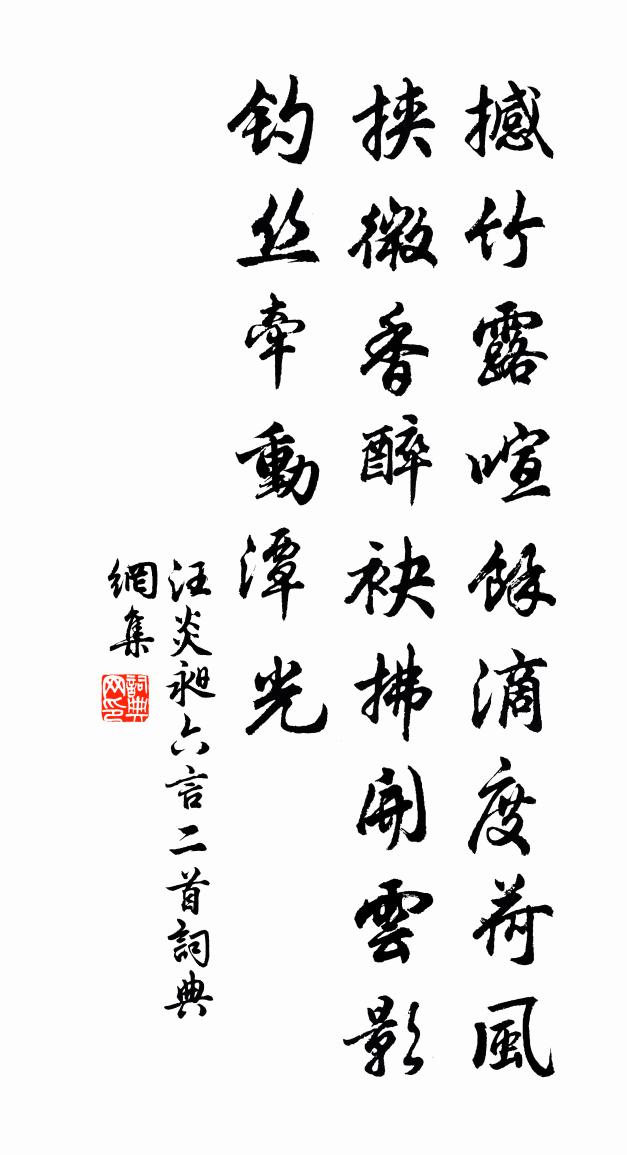 撼竹露喧餘滴度荷風
挟微香醉袂拂開雲影
釣丝牽動潭光
汪炎昶六言二首詞典
網集
詞典
网印